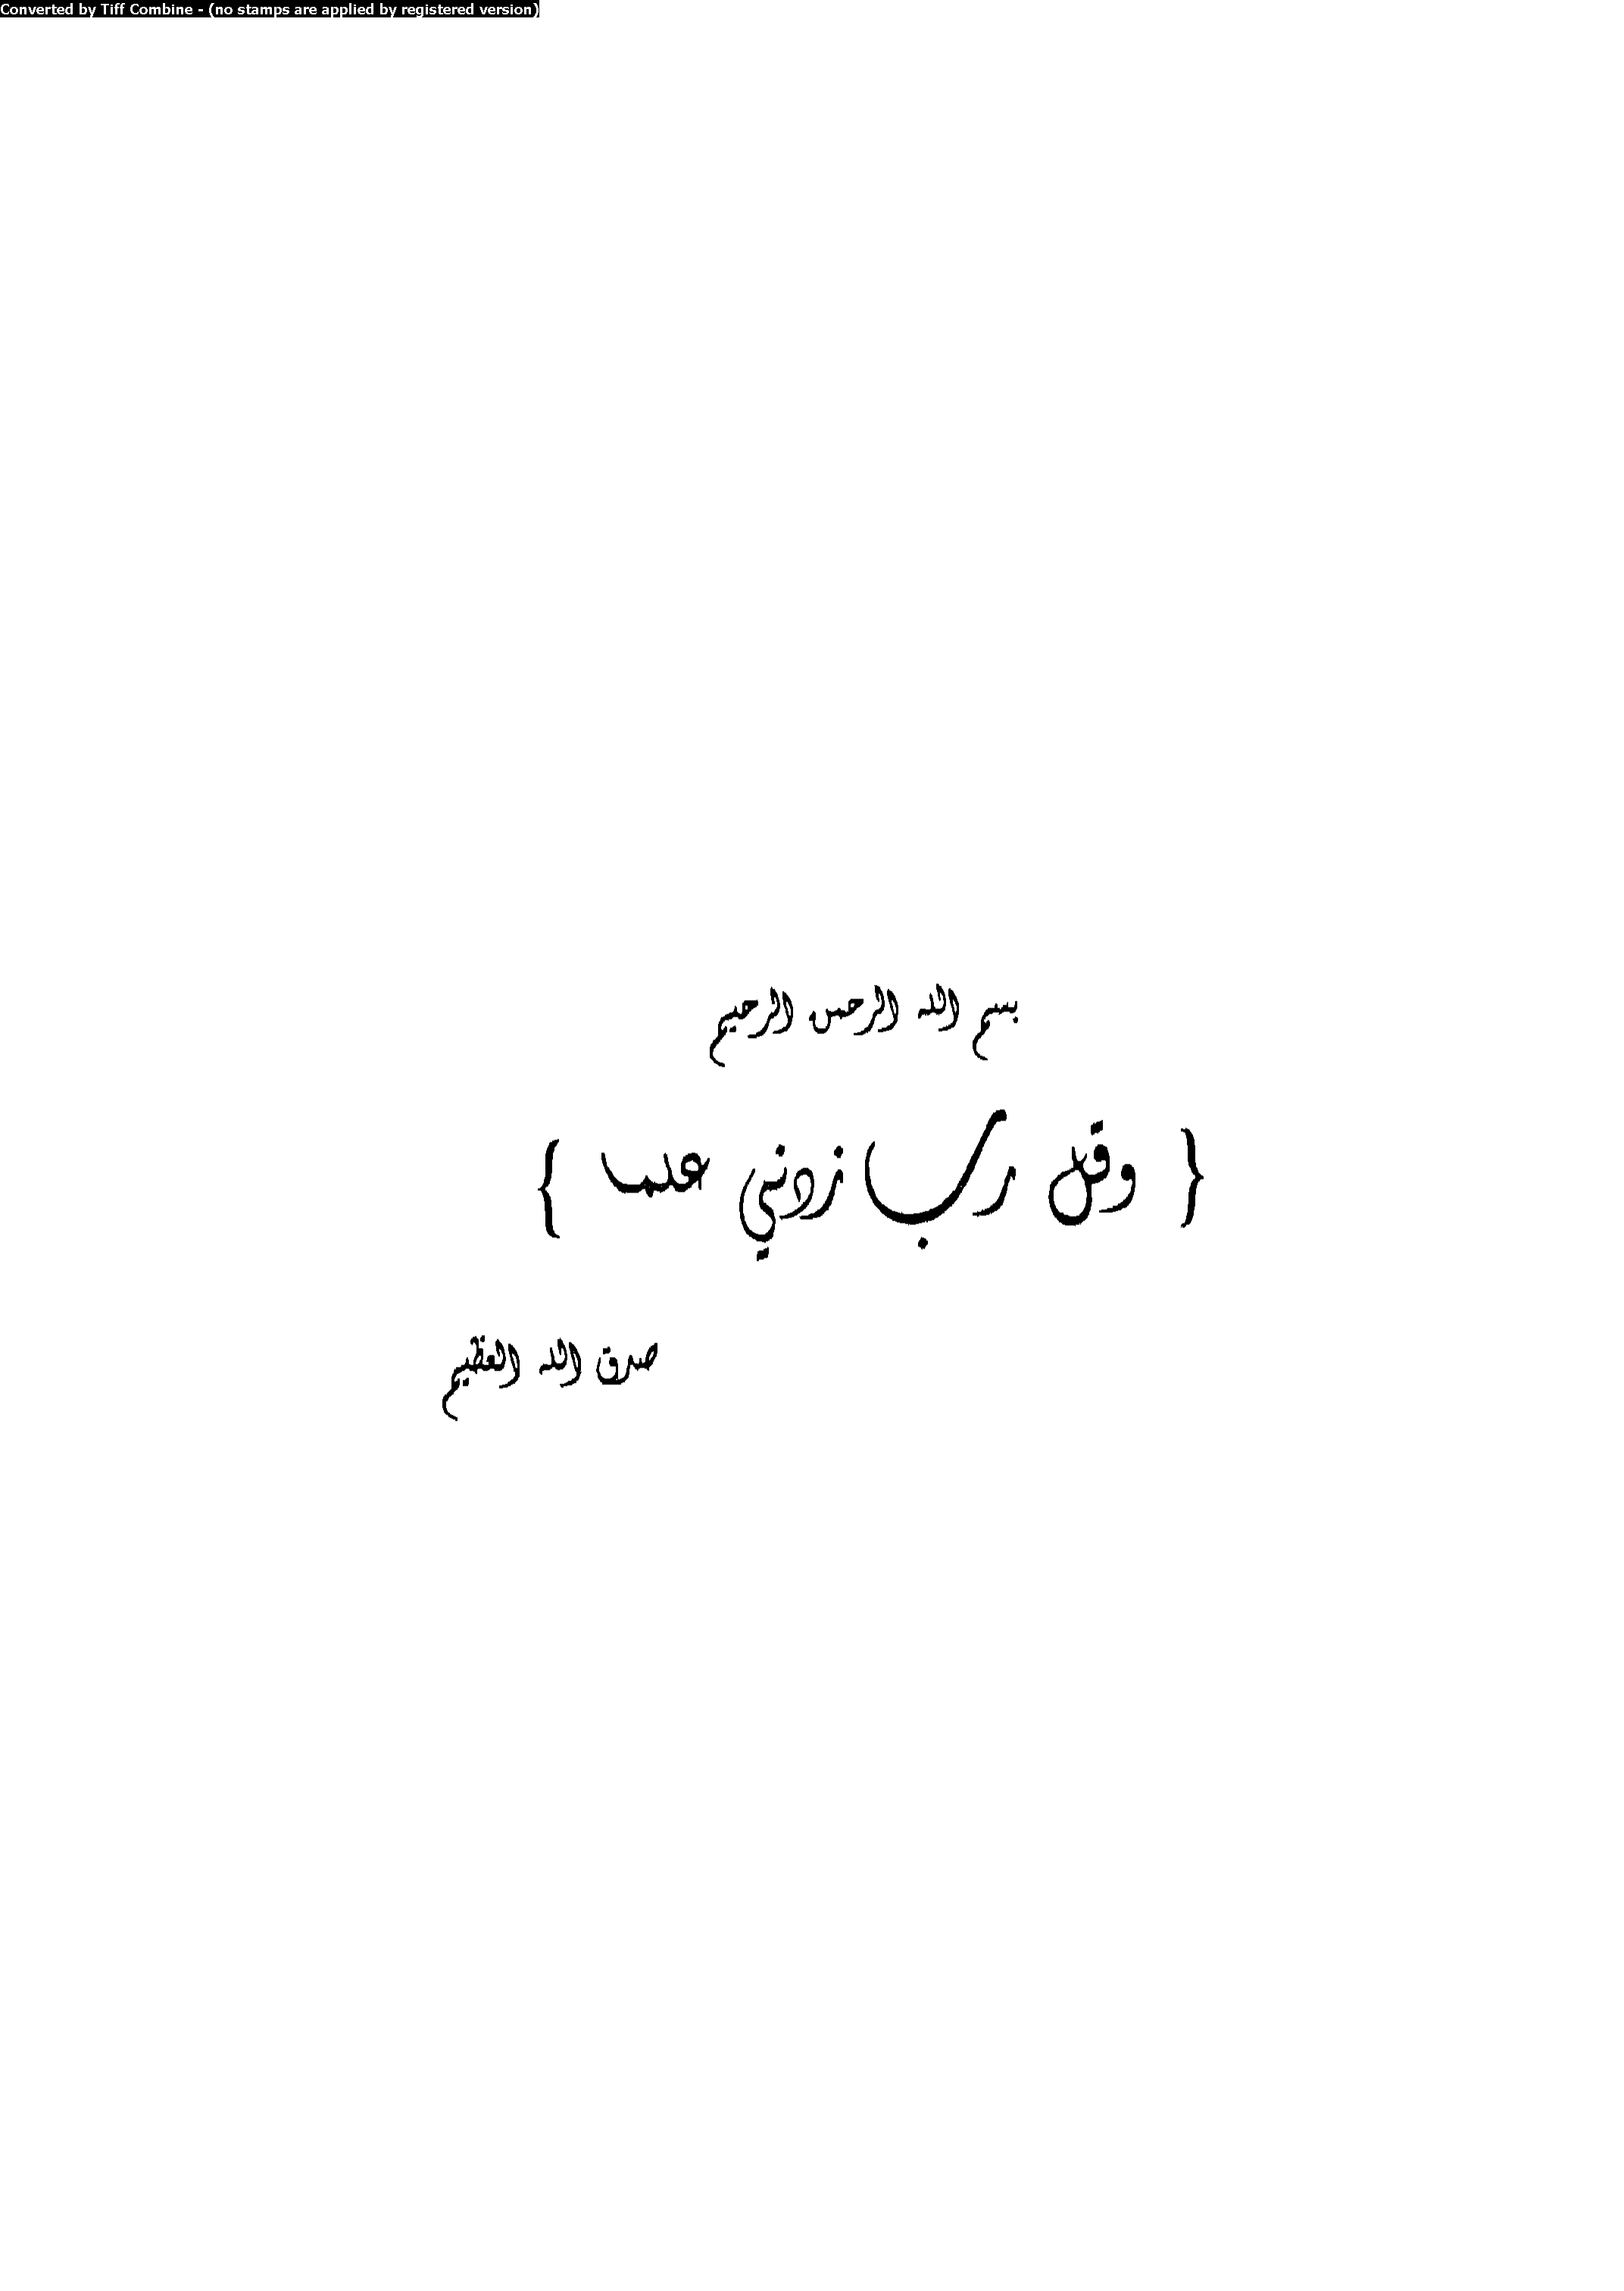 Converted by Tiff Combine - (no stamps are applied by registered version)
بسم الله الرحمن الرحيم
{ وقل رب زدني علما }
صدق الله العظيم